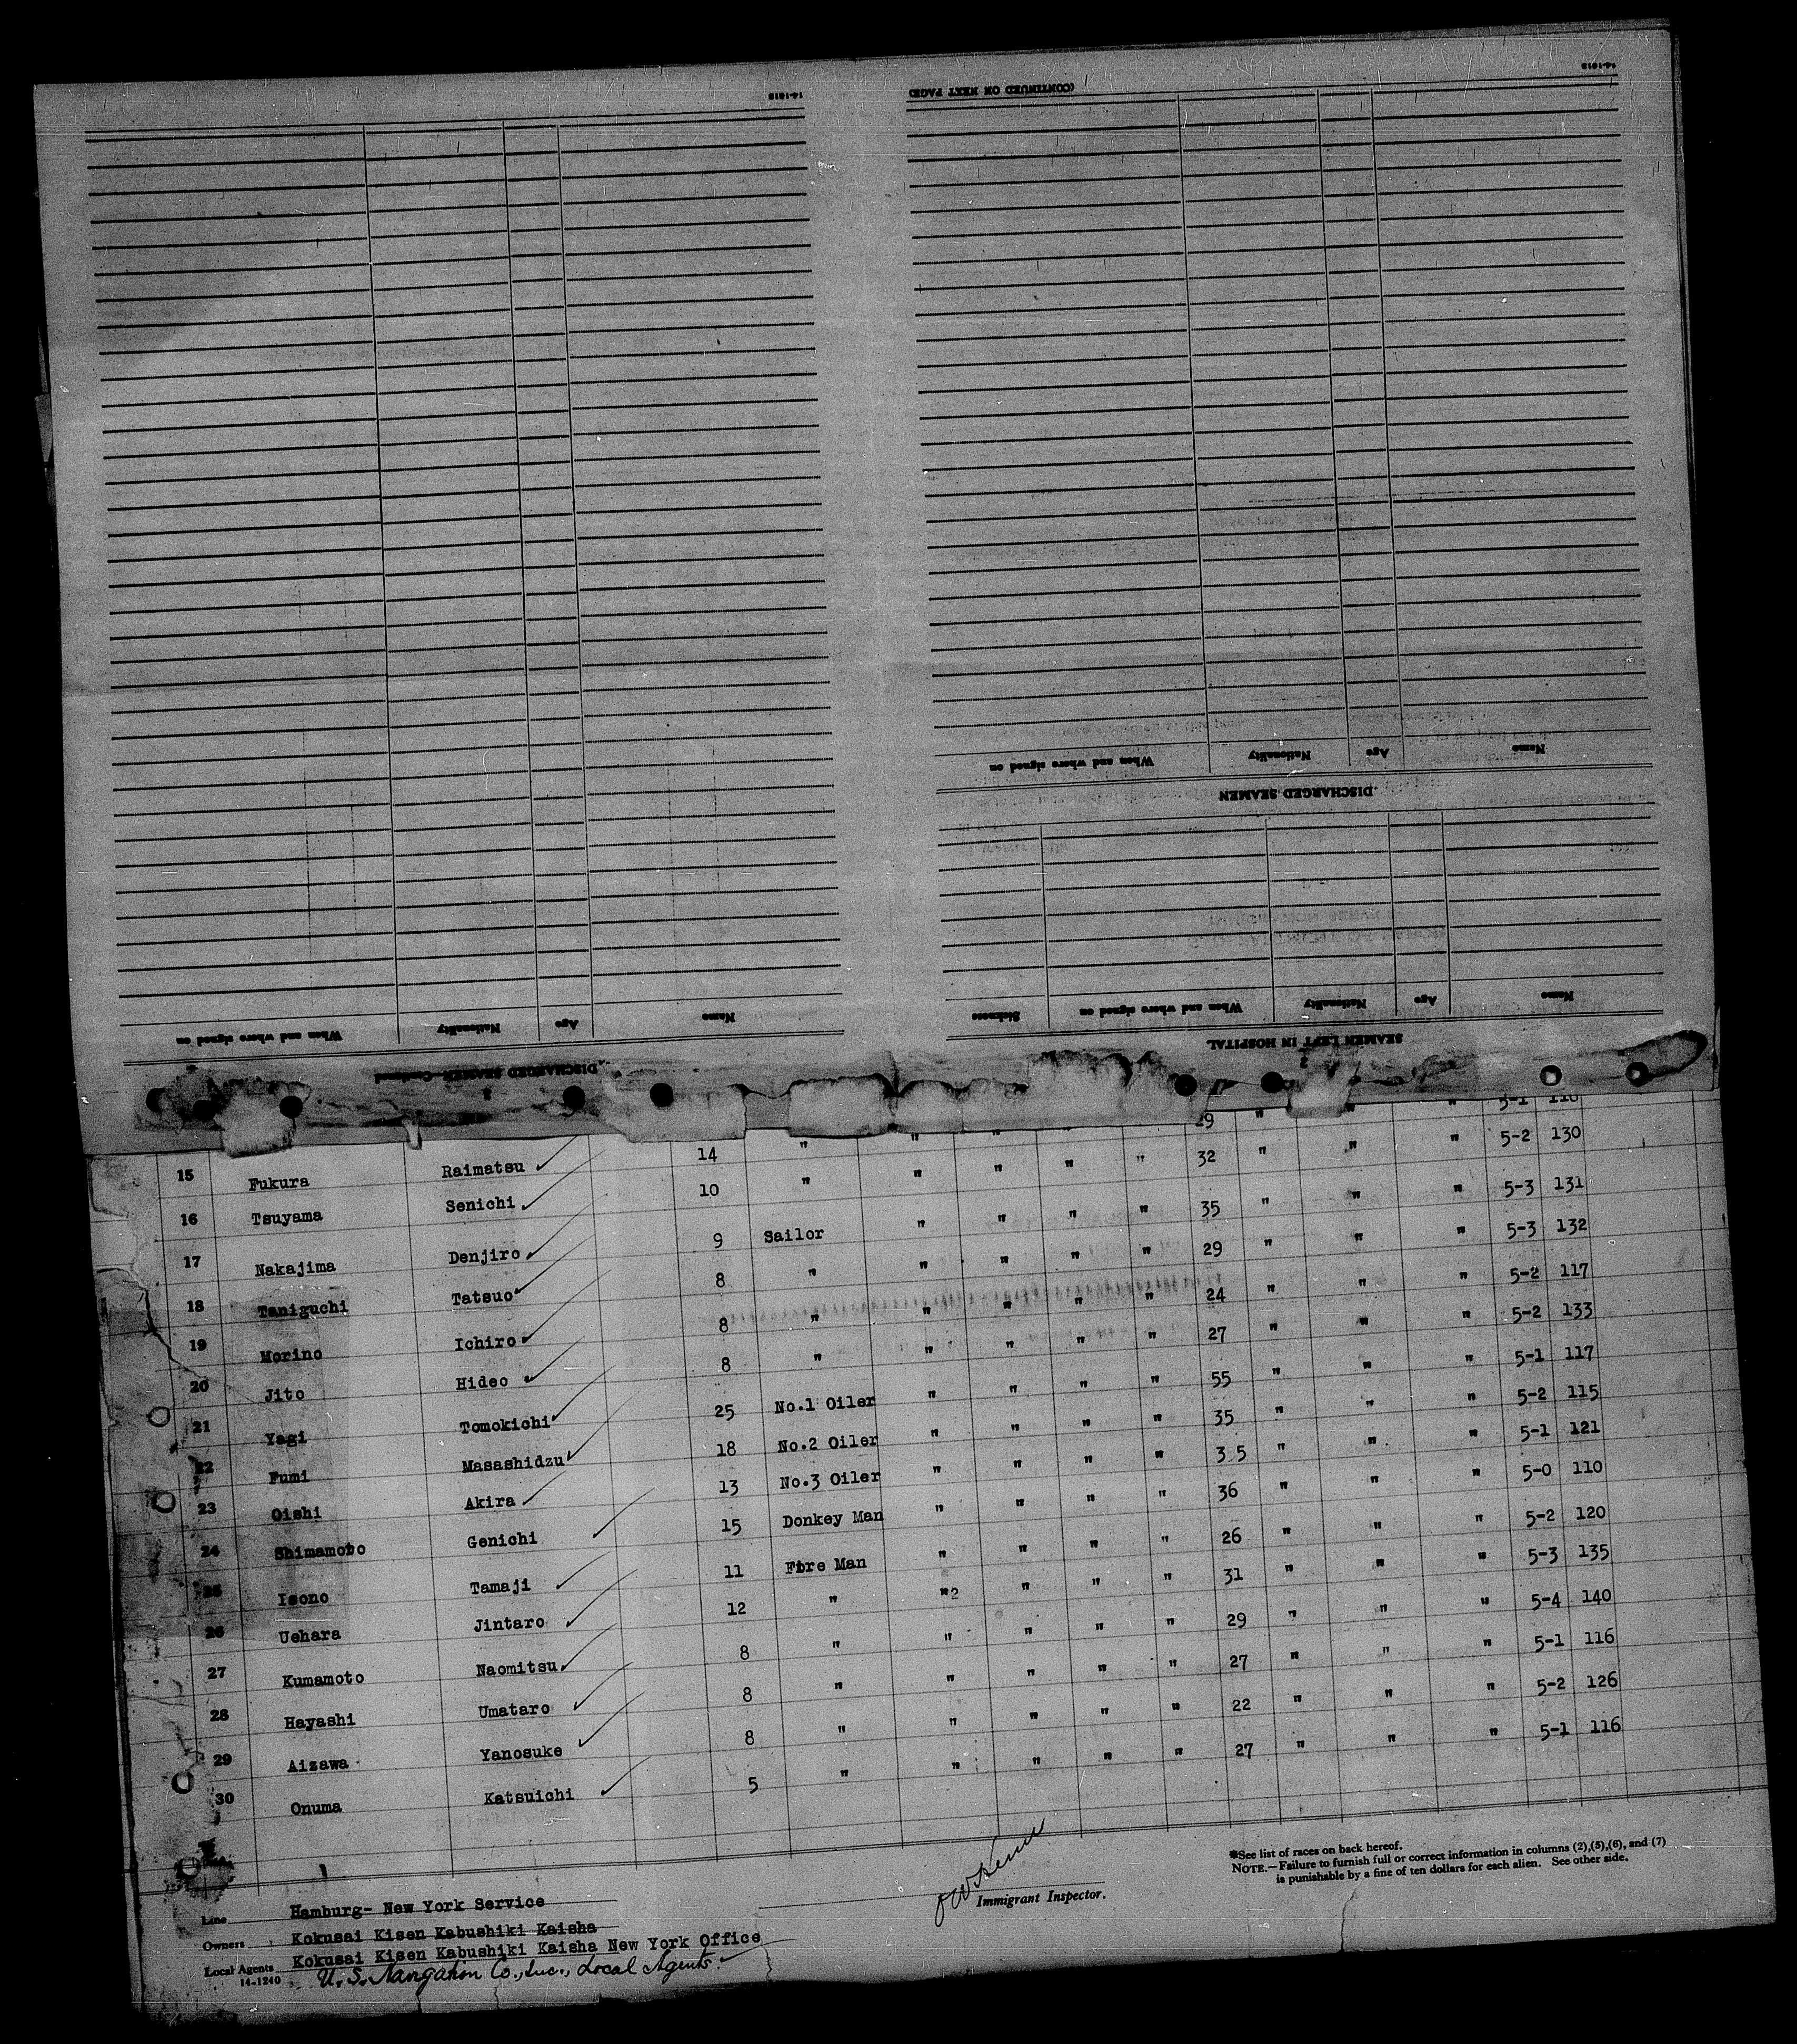 14-1213
(CONTINUED ON NEXT PAGE)
14-1213
Name Age Nationality When and where signed on
DISCHARGED SEAMEN
Name Age Nationality When and where signed on Sickness
SEAMEN LEFT IN HOSPITAL
2
Name Age Nationality When and where signed on
DISCHARGED SEAMEN—Continued
3
15 Fukura Raimatsu 14 " " " " 29 " " " 5-1 110
16 Tsuyama Senichi 10 " " " " " 32 " " " 5-2 130
17 Nakajima Denjiro 9 Sailor " " " " 35 " " " 5-3 131
18 Taniguchi Tatsuo 8 " " " " " 29 " " " 5-3 132
19 Morino Ichiro 8 " " " " " 24 " " " 5-2 117
20 Jito Hideo 8 " " " " " 27 " " " 5-2 133
21 Yagi Tomokichi 25 No.1 Oiler " " " " 55 " " " 5-1 117
22 Fumi Masashidzu 18 No.2 Oiler " " " " 35 " " " 5-2 115
23 Oishi Akira 13 No.3 Oiler " " " " 35 " " " 5-1 121
24 Shimamoto Genichi 15 Donkey Man " " " " 36 " " " 5-0 110
25 Isono Tamaji 11 Fire Man " " " " 26 " " " 5-2 120
26 Uehara Jintaro 12 " "2 " " " 31 " " " 5-3 135
27 Kumamoto Naomitsu 8 " " " " " 29 " " " 5-4 140
28 Hayashi Umataro 8 " " " " " 27 " " " 5-1 116
29 Aizawa Yanosuke 8 " " " " " 22 " " " 5-2 126
30 Onuma Katsuichi 5 " " " " " 27 " " " 5-1 116
Line Hamburg- New York Service
Owners Kokusai Kisen Kabushiki Kaisha
Local Agents Kokusai Kisen Kabushiki Kaisha New York Office
14-1240 U. S. Navigation Co., Inc., Local Agents.
Immigrant Inspector.
*See list of races on back hereof.
NOTE.—Failure to furnish full or correct information in columns (2),(5),(6), and (7)
is punishable by a fine of ten dollars for each alien. See other side.